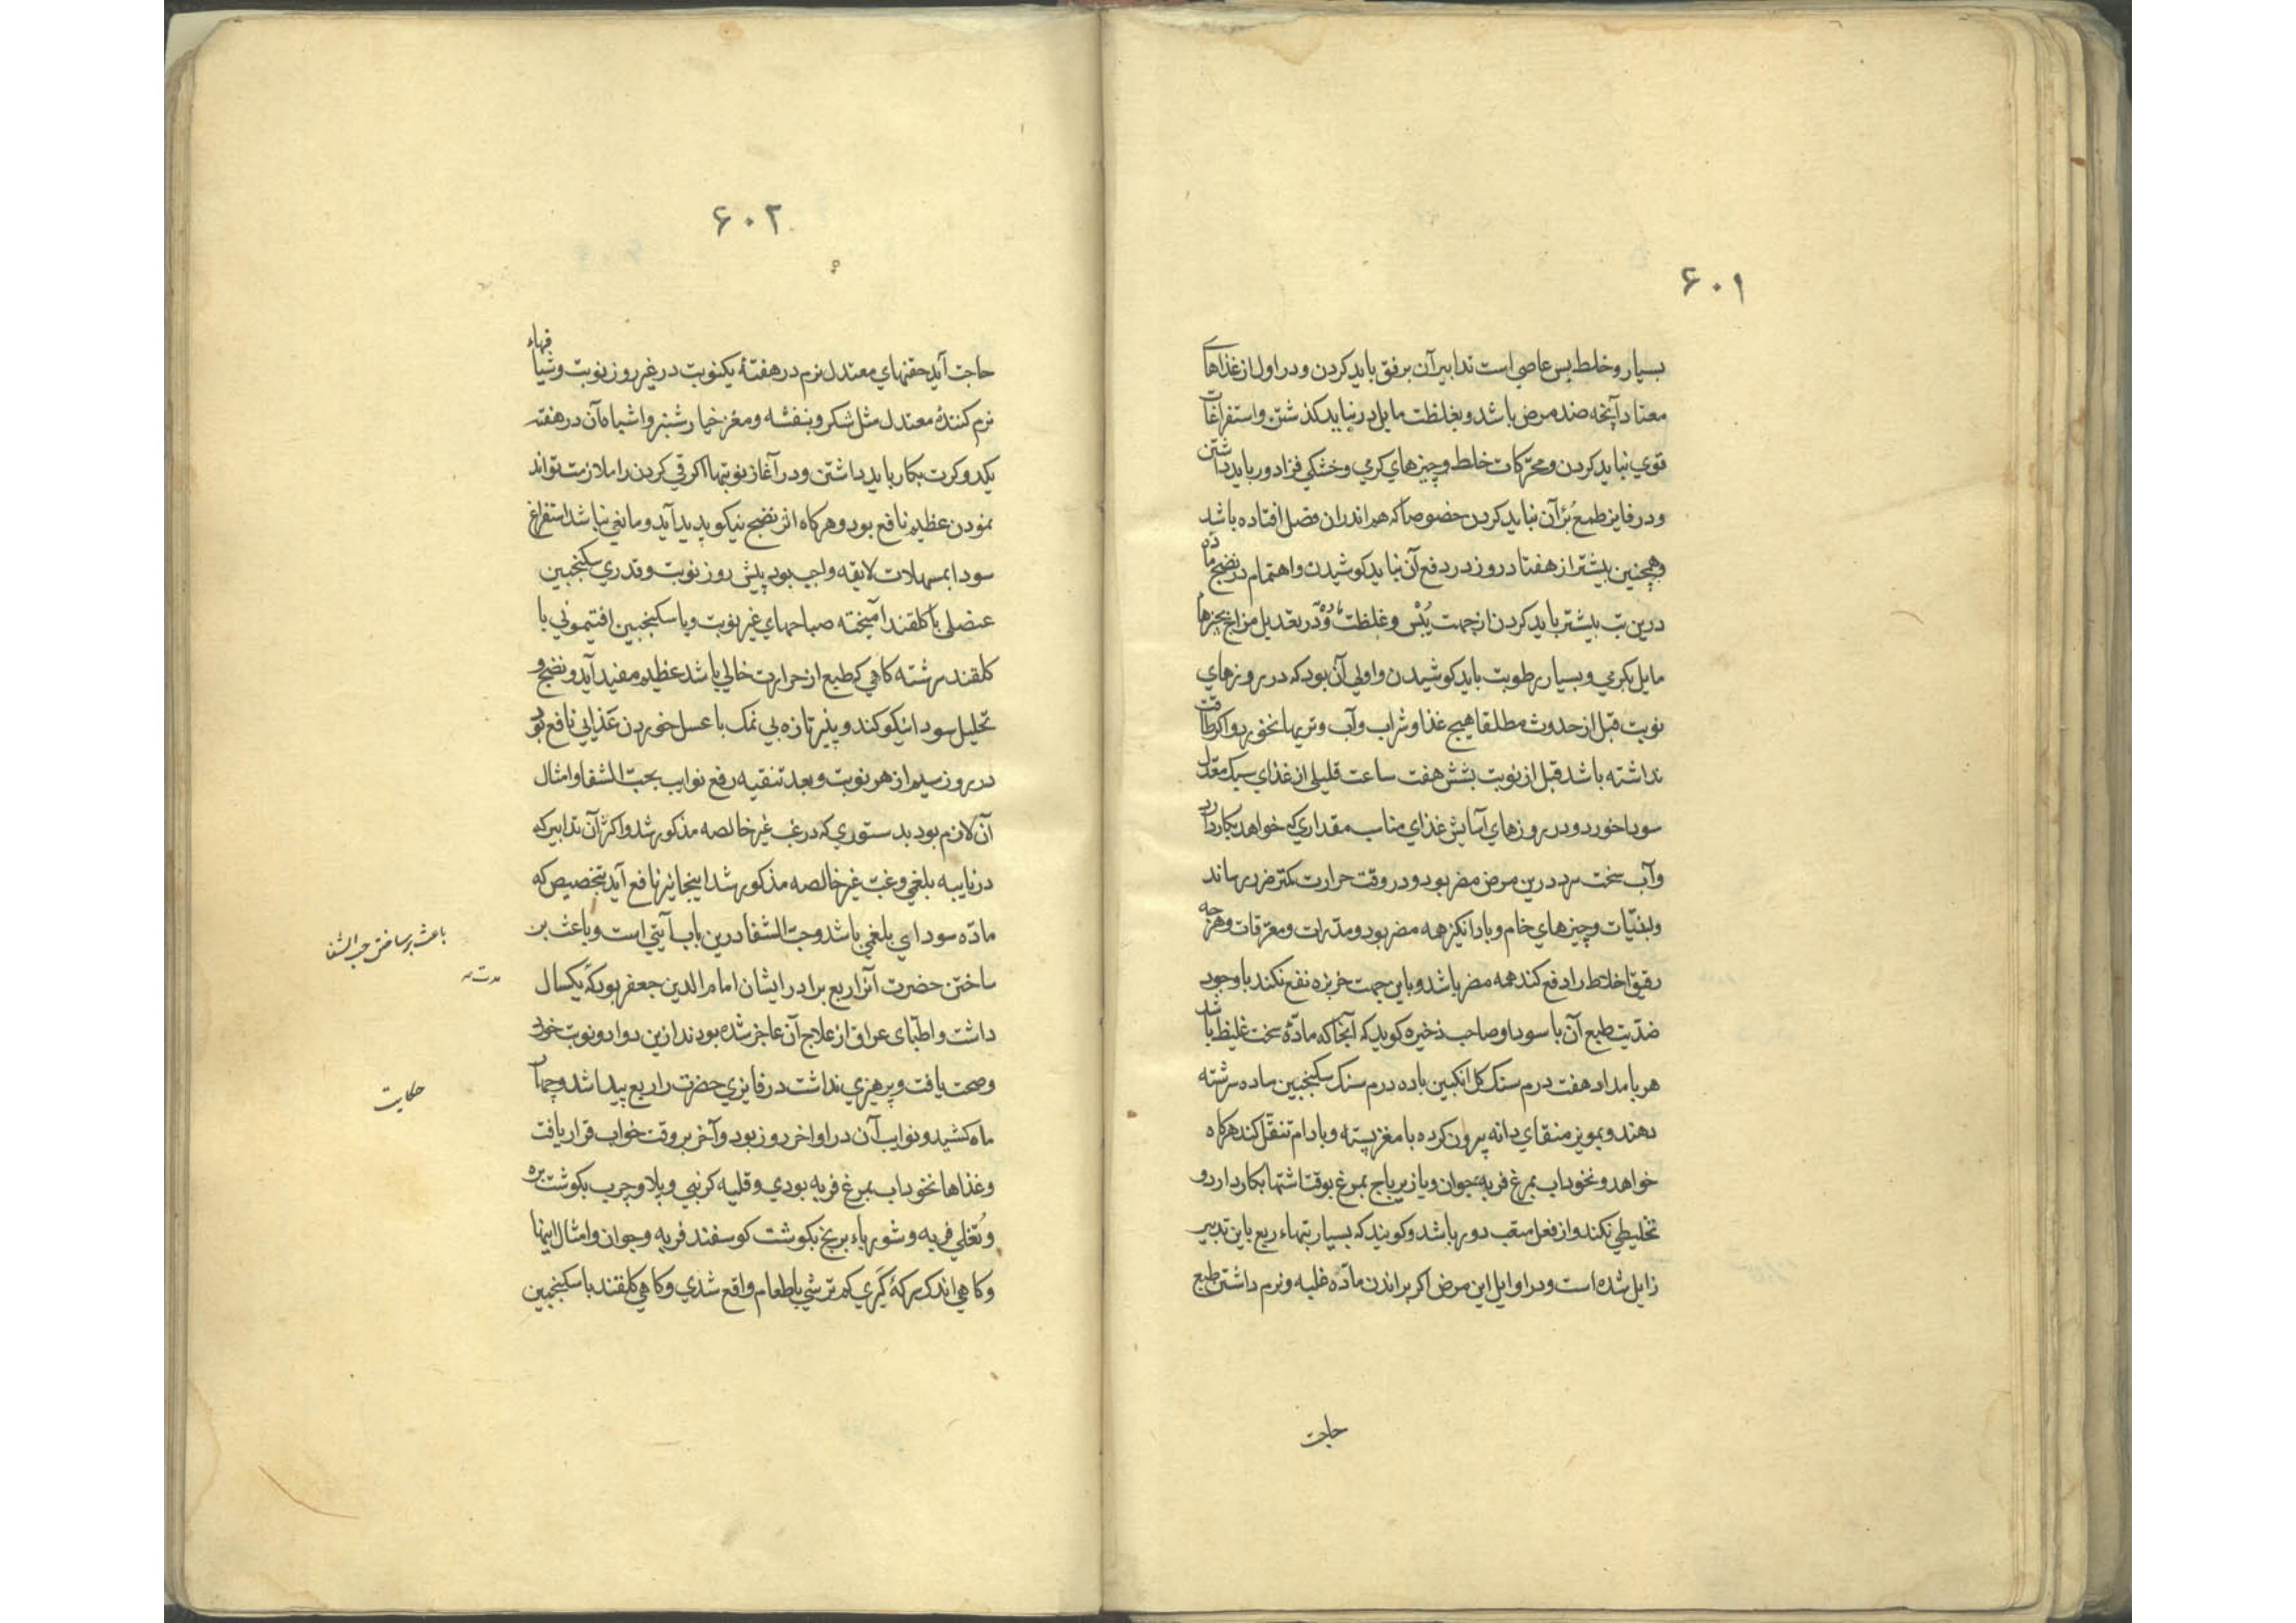 ۶۰۱
بسیار و خلط بس عاصی است تدابیر آن برفق باید کردن و در اول از غذاهای
معتاد آنچه ضد مرض باشد و بغلظت مایل در نباید کذشتن و استفراغات
قوی نباید کردن و محرّکات خلط و چیزهای کرمی و خشکی فزا دور باید داشتن
و در فایز طمع بُرْآن نباید کردن خصوصا که هم اندران فصل افتاده باشد
و همچنین بیشتر از هفتاد روز در دفع آن نباید کوشیدن و اهتمام در نضج مادّه
درین تب بیشتر باید کردن از جهت یُبْس و غلظت مادّه و در تعدیل مزاج بچیزها
مایل بکرمی و بسیار رطوبت باید کوشیدن و اولی آن بود که در روزهای
نوبت قبل از حدوث مطلقا هیچ غذا و شراب و آب و تریها نخورد و اکر طاقت
نداشته باشد قبل از نوبت بشش هفت ساعت قلیلی از غذای سبک معتدل
سودا خورد و در روزهای آسایش غذای مناسب مقداری که خواهد بکار دارد
و آب سخت سرد درین مرض مضر بود و در وقت حرارت کمتر ضرر رساند
و لبنیّات و چیزهای خام و باد انکیز همه مضر بود و مدرات و معرّقات و هرچه
رقیق اخلاط را دفع کند همه مضر باشد و باین جهت خربزه نفع نکند با وجود
ضدّیت طبع آن با سودا و صاحب ذخیره کوید که آنجا که مادّهٔ سخت غلیظ باشد
هر بامداد هفت درم سنک کل انکبین با ده درم سنک سکنجبین ساده سرشته
دهند و بمویز منقای دانه بیرون کرده با مغز پسته و بادام تنقّل کند هرکاه
خواهد و نخوداب بمرغ فربه جوان و یا زیرباج بمرغ بوقت اشتها بکار دارد و
تخلیطی نکند و از فعل متعب دور باشد و کویند که بسیار تبهاء ربع باین تدبیر
زایل شده است و در اوایل این مرض اکر براندن مادّه غلبه و نرم داشتن طبع
حاجت
۶۰۲
حاجت آید حقنهای معتدل نرم در هفتهٔ یکنوبت در غیر روز نوبت و شیافهاء
نرم کنندهٔ معتدل مثل شکر و بنفشه و مغز خیارشنبر و اشباه آن در هفته
یکدو کرت بکار باید داشتن و در آغاز نوبتها اکر قی کردن را ملازمت تواند
نمودن عظیم نافع بود و هرکاه اثر نضج نیکو پدید آید و مانعی نباشد استفراغ
سودا بمسهلات لایقه واجب بود پیش روز نوبت و قدری سکنجبین
عنصلی با کلقند آمیخته صباحهای غیر نوبت و یا سکنجبین افتیمونی با
کلقند سرشته کاهی که طبع از حرارت خالی باشد عظیم مفید آید و نضج و
تحلیل سودا نیکو کند و پنیر تازه بی نمک با عسل خوردن غذایی نافع بود
در روز سیم از هر نوبت و بعد تنقیه رفع نوایب بحب الشفا و امثال
آن لازم بود بدستوری که در غب غیر خالصه مذکور شد و اکثر آن تدابیر که
در نایبه بلغمی و غبّ غیر خالصه مذکور شد اینجا نیز نافع آید بتخصیص که
مادّه سودای بلغمی باشد و حبّ الشفا درین باب آیتی است و باعث بر
باعث بر ساختن حب الشفا
ساختن حضرت آنرا ربع برادر ایشان امام الدین جعفر بود که یکسال
مدت
داشت و اطبّای عراق از علاج آن عاجز شده بودند ازین دوا دو نوبت خورد
و صحت یافت و پرهیزی نداشت در فایزی حضرت را ربع پیدا شد و چهار
حکایت
ماه کشید و نوایب آن در اواخر روز بود و آخر بر وقت خواب قرار یافت
و غذاها نخوداب بمرغ فربه بودی و قلیه کرنبی و پلاو چرب بکوشت بره
و بُغلی فربه و شورباء برنج بکوشت کوسفند فربه و جوان و امثال اینها
و کاهی اندک سرکهٔ کَبری کم ترشی با طعام واقع شدی و کاهی کلقند با سکنجبین